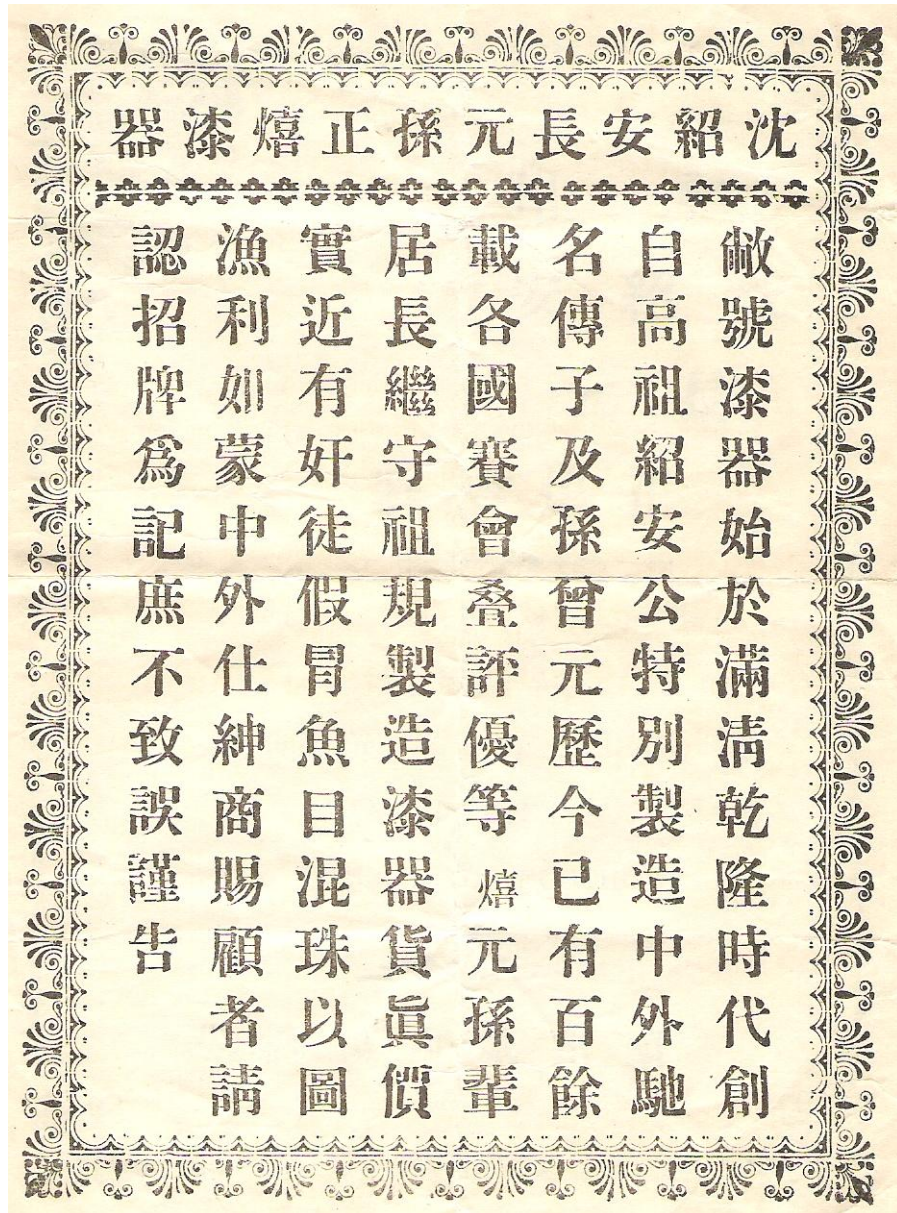 沈紹安長元孫正熺漆器
敝號漆器始於滿清乾隆時代創
自高祖紹安公特別製造中外馳
名傳子及孫曾元歷今已有百餘
載各國賽會叠評優等熺元孫輩
居長繼守祖規製造漆器貨眞價
實近有奸徒假冒魚目混珠以圖
漁利如蒙中外仕紳商賜顧者請
認招牌爲記庶不致誤謹告